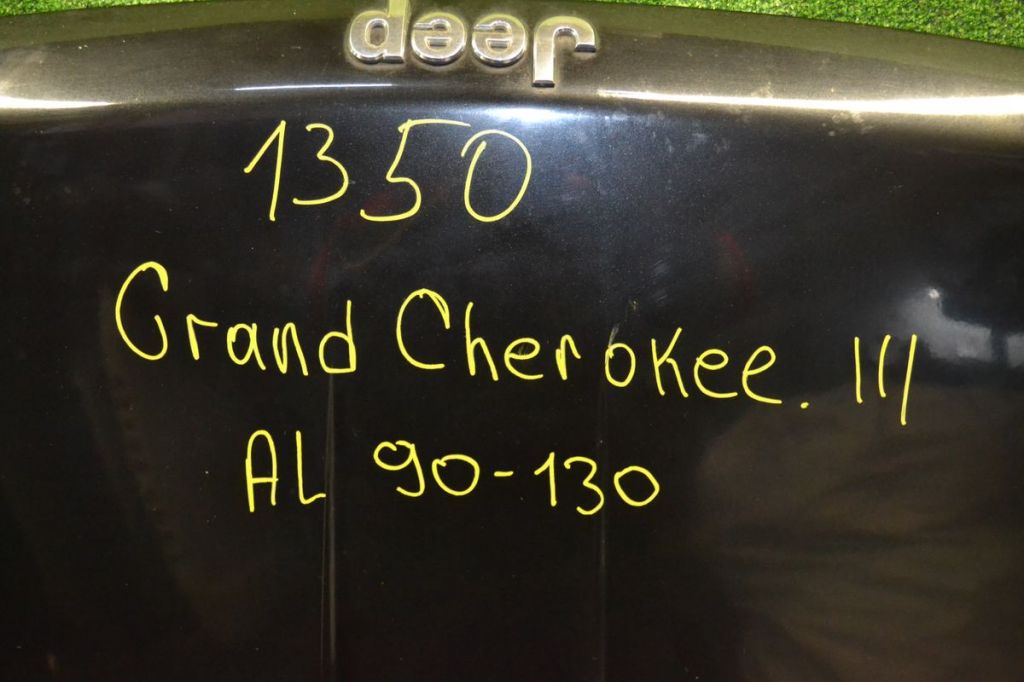 Jeep
1350
Grand Cherokee. III
AL 90-130